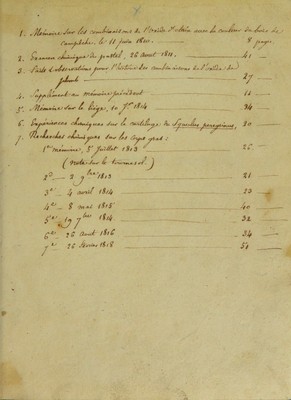 1. Mémoire sur les combinaisons de l'oxide d'étain avec la couleur du bois de
campêche, le 11 juin 1810. 8 pages.
2. Examen chimique du pastel, 26 aout 1811. 41 -
3. Pour l'histoire des combinaisons de l'oxide de
plomb - 27 -
4. Supplément au mémoire précédent 11 -
5. Mémoire sur le liège, 10 7bre 1814 34
6. Expériences chimiques sur le cartilage du Squalus peregrinus, 20
7. Recherches chimiques sur les corps gras:
1er mémoire, 5 juillet 1813 26
(note sur le tournesol.)
2d - 2 9bre 1813 21
3e - 4 avril 1814 23
4e - 8 mai 1815 40
5e - 19 7bre 1814 32
6e - 26 Aout 1816 34
7e - 26 février 1818 51